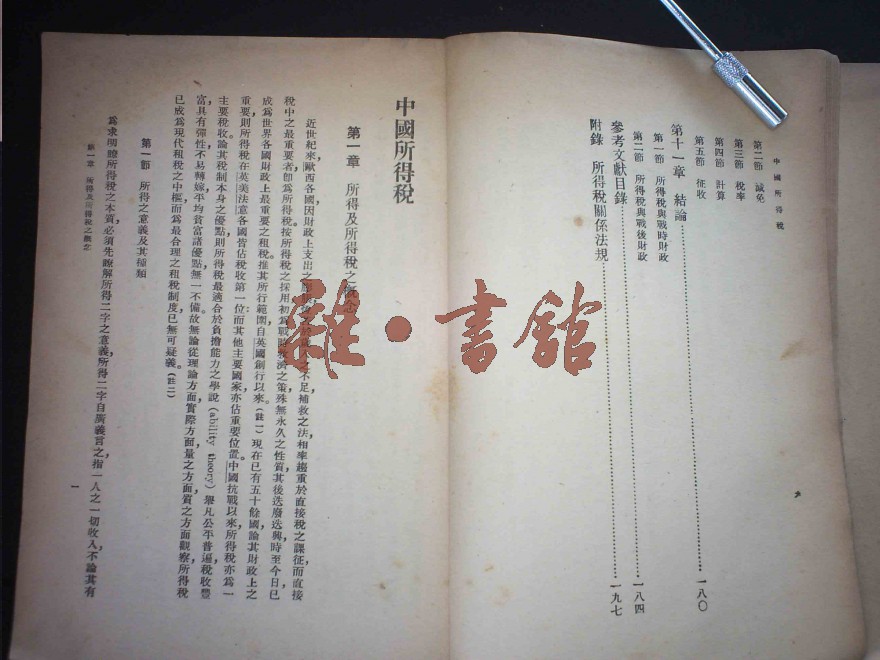 中國所得稅
第二節 減免
第三節 稅率
第四節 計算
第五節 征收
第十一章 結論……一八〇
第一節 所得稅與戰時財政
第二節 所得稅與戰後財政……一八四
參考文獻目錄……一九七
附錄 所得稅關係法規
中國所得稅
第一章 所得及所得稅之概念
近世紀來,歐西各國,因財政上支出之不足,補救之法,相率趨重於直接稅之課征,而直接
稅中之最重要者,卽爲所得稅。按所得稅之採用,初爲戰時救濟之策,殊無永久之性質,其後迭廢迭興,時至今日,已
成爲世界各國財政上最重要之租稅。推其所行範圍,自英國創行以來,(註一)現在已有五十餘國,論其財政上之
重要,則所得稅在英美法意各國皆佔稅收第一位;而其他主要國家,亦佔重要位置。中國抗戰以來,所得稅亦爲一
主要稅收。論其稅制本身之優點,則所得稅最適合於負擔能力之學說(ability theory)舉凡公平普遍,稅收豐
富,具有彈性,不易轉嫁,平均貧富諸優點,無一不備。故無論從理論方面,實際方面,量之方面,質之方面觀察,所得稅
已成爲現代租稅之中樞,而爲最合理之租稅制度,已無可疑義。(註二)
第一節 所得之意義及其種類
爲求明瞭所得稅之本質,必須先瞭解所得二字之意義,所得二字自廣義言之,指一人之一切收入,不論其有
第一章 所得及所得稅之概念
一
雜·書舘